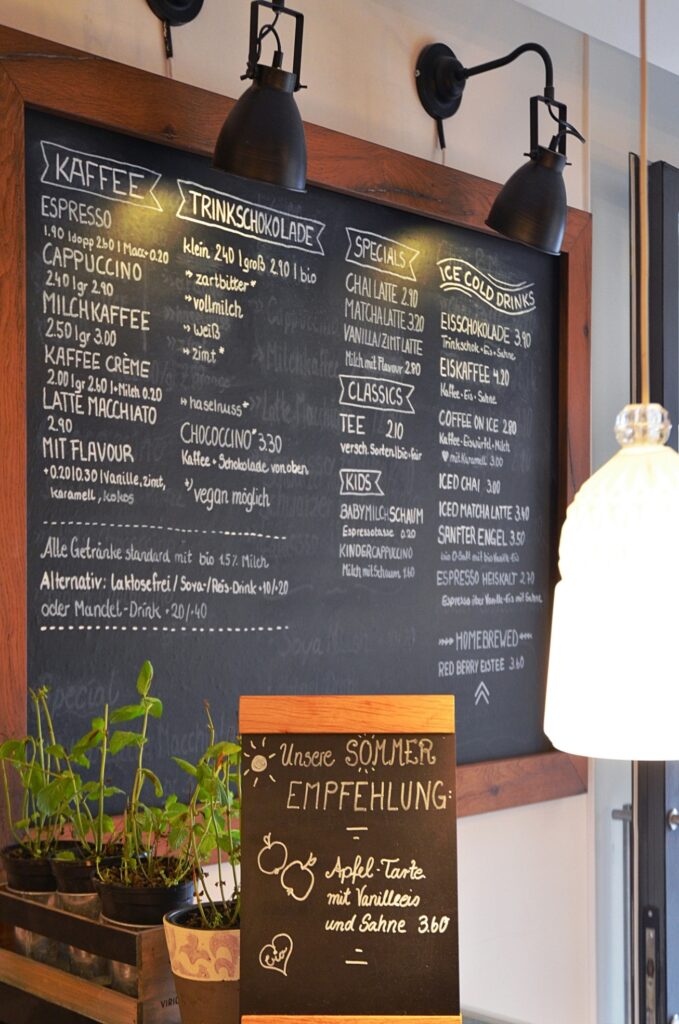 KAFFEE
ESPRESSO
1.90 | dopp 2.60 | Macc + 0.20
CAPPUCCINO
2.40 | gr 2.90
MILCHKAFFEE
2.50 | gr 3.00
KAFFEE CRÈME
2.00 | gr 2.60 | + Milch 0.20
LATTE MACCHIATO
2.90
MIT FLAVOUR
+0.20 | 0.30 | Vanille, zimt,
karamell, kokos
TRINKSCHOKOLADE
klein 2.40 | groß 2.90 | bio
» zartbitter*
» vollmilch
» weiß
» zimt*
» haselnuss*
CHOCOCCINO* 3.30
Kaffee + Schokolade von oben
*) vegan möglich
Alle Getränke standard mit bio 1.5% Milch
Alternativ: Laktosefrei / Soya- / Reis-Drink +10/+20
oder Mandel-Drink +20/+40
SPECIALS
CHAI LATTE 2.90
MATCHA LATTE 3.20
VANILLA/ZIMT LATTE
Milch mit Flavour 2.80
CLASSICS
TEE 2.10
versch. Sorten | bio + fair
KIDS
BABYMILCHSCHAUM
Espressotasse 0.20
KINDERCAPPUCCINO
Milch mit Schaum 1.60
ICE COLD DRINKS
EISSCHOKOLADE 3.90
Trinkschok + Eis + Sahne
EISKAFFEE 4.20
Kaffee + Eis + Sahne
COFFEE ON ICE 2.80
Kaffee + Eiswürfel + Milch
♥ mit Karamell 3.00
ICED CHAI 3.00
ICED MATCHA LATTE 3.40
SANFTER ENGEL 3.50
bio O-Saft mit bio Vanille-Eis
ESPRESSO HEISKALT 2.70
Espresso über Vanille-Eis mit Sahne
HOMEBREWED
RED BERRY EISTEE 3.60
Unsere SOMMER
EMPFEHLUNG:
Apfel-Tarte
mit Vanilleeis
und Sahne 3.60
bio